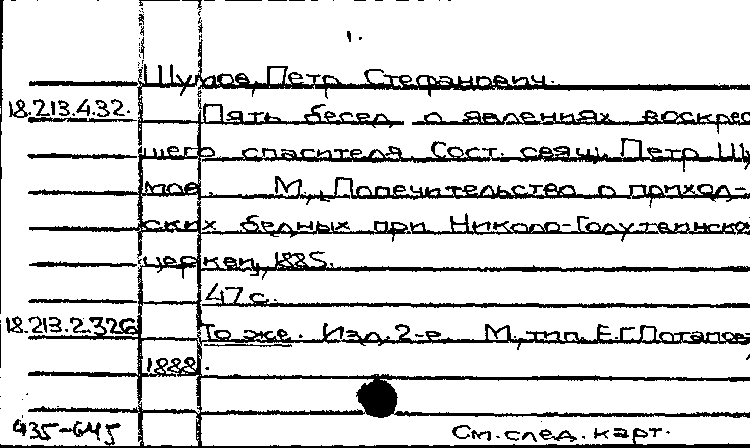 1.
Шумов, Петр Стефанович.
18.213.4.32. Пять бесед о явлениях воскрес
шего спасителя. Сост. свящ. Петр Шу
мов. М., Попечительство о приход-
ских бедных при Николо-Голутвинско
церкви, 1885.
47 с.
18.213.2.326 То же. Изд. 2-е. М., тип. Е.Г. Потапов
1888.
935-645 См. след. карт.